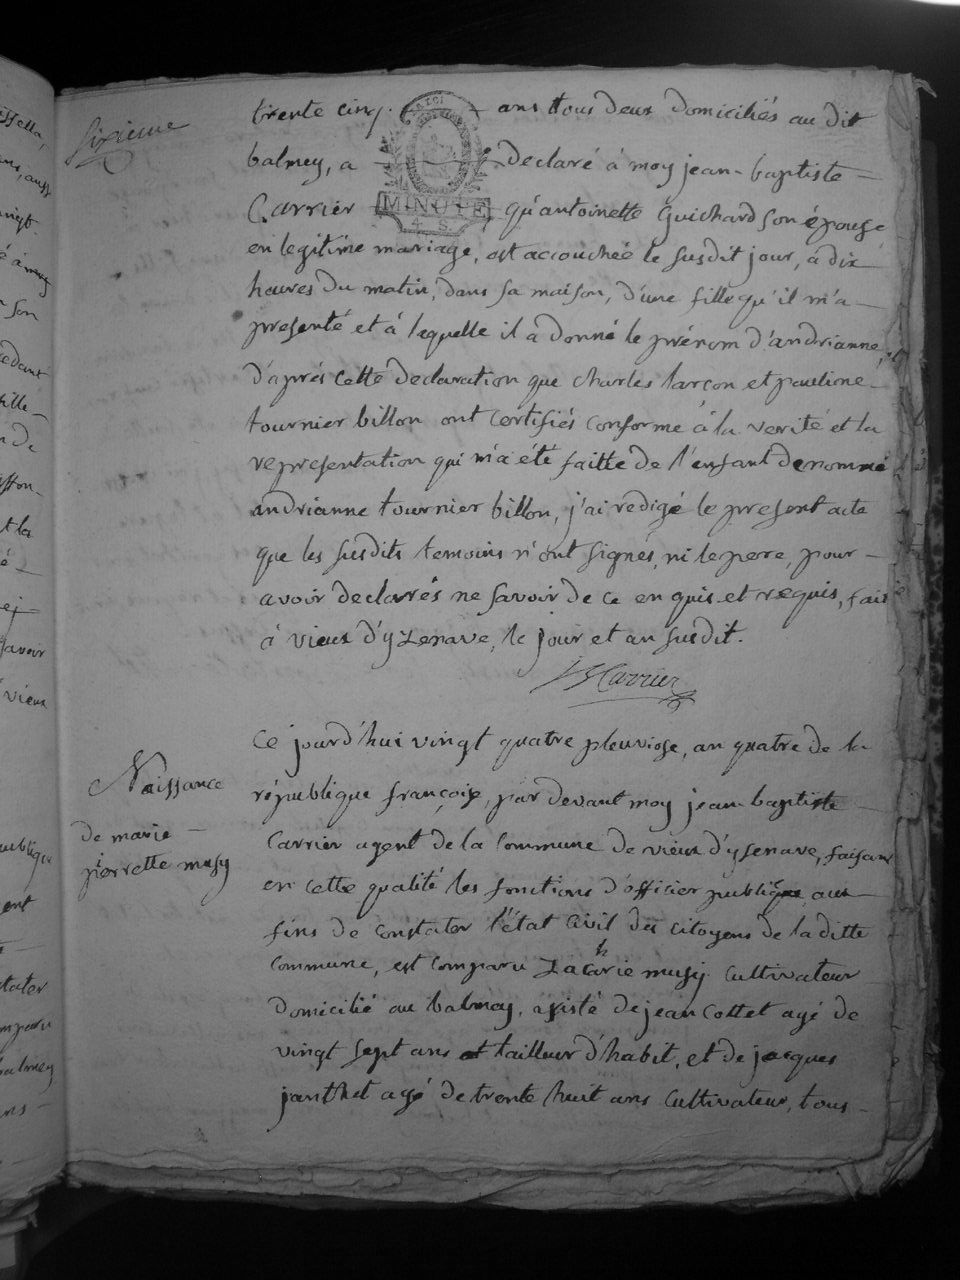 Sixieme
trente cinq ans tous deux domiciliés au dit
balmey, a declaré à moy jean-baptiste
MINUTE
4 S.
Carrier qu'antoinette Guichard son épouse
en legitime mariage, est accouchée le susdit jour, à dix
heures du matin, dans sa maison, d'une fille qu'il m'a
presenté et à lequelle il a donné le prénom d'andrianne,
d'après cette declaration que charles larçon et pauline
tournier billon ont certifiés conforme à la verité et la
representation qui m'a été faitte de l'enfant denommé
andrianne tournier billon, j'ai rédigé le present acte
que les susdits temoins n'ont signés, ni le pere, pour
avoir declarés ne savoir de ce enquis et requis, fait
à vieux d'yzenave, le jour et an susdit.
JB Carrier
Naissance
de marie
pierrette musy
Ce jourd'hui vingt quatre pleuviose, an quatre de la
république françoise, par devant moy jean-baptiste
Carrier agent de la Commune de vieux d'ysenave, faisant
en cette qualité les fonctions d'officier publique aux
fins de constater l'état civil des citoyens de la ditte
commune, est comparu Zacarie musy cultivateur
h
domicilié au balmey, assisté de jean Cottet agé de
vingt sept ans et tailleur d'habit, et de jacques
janthet agé de trente huit ans cultivateur, tous